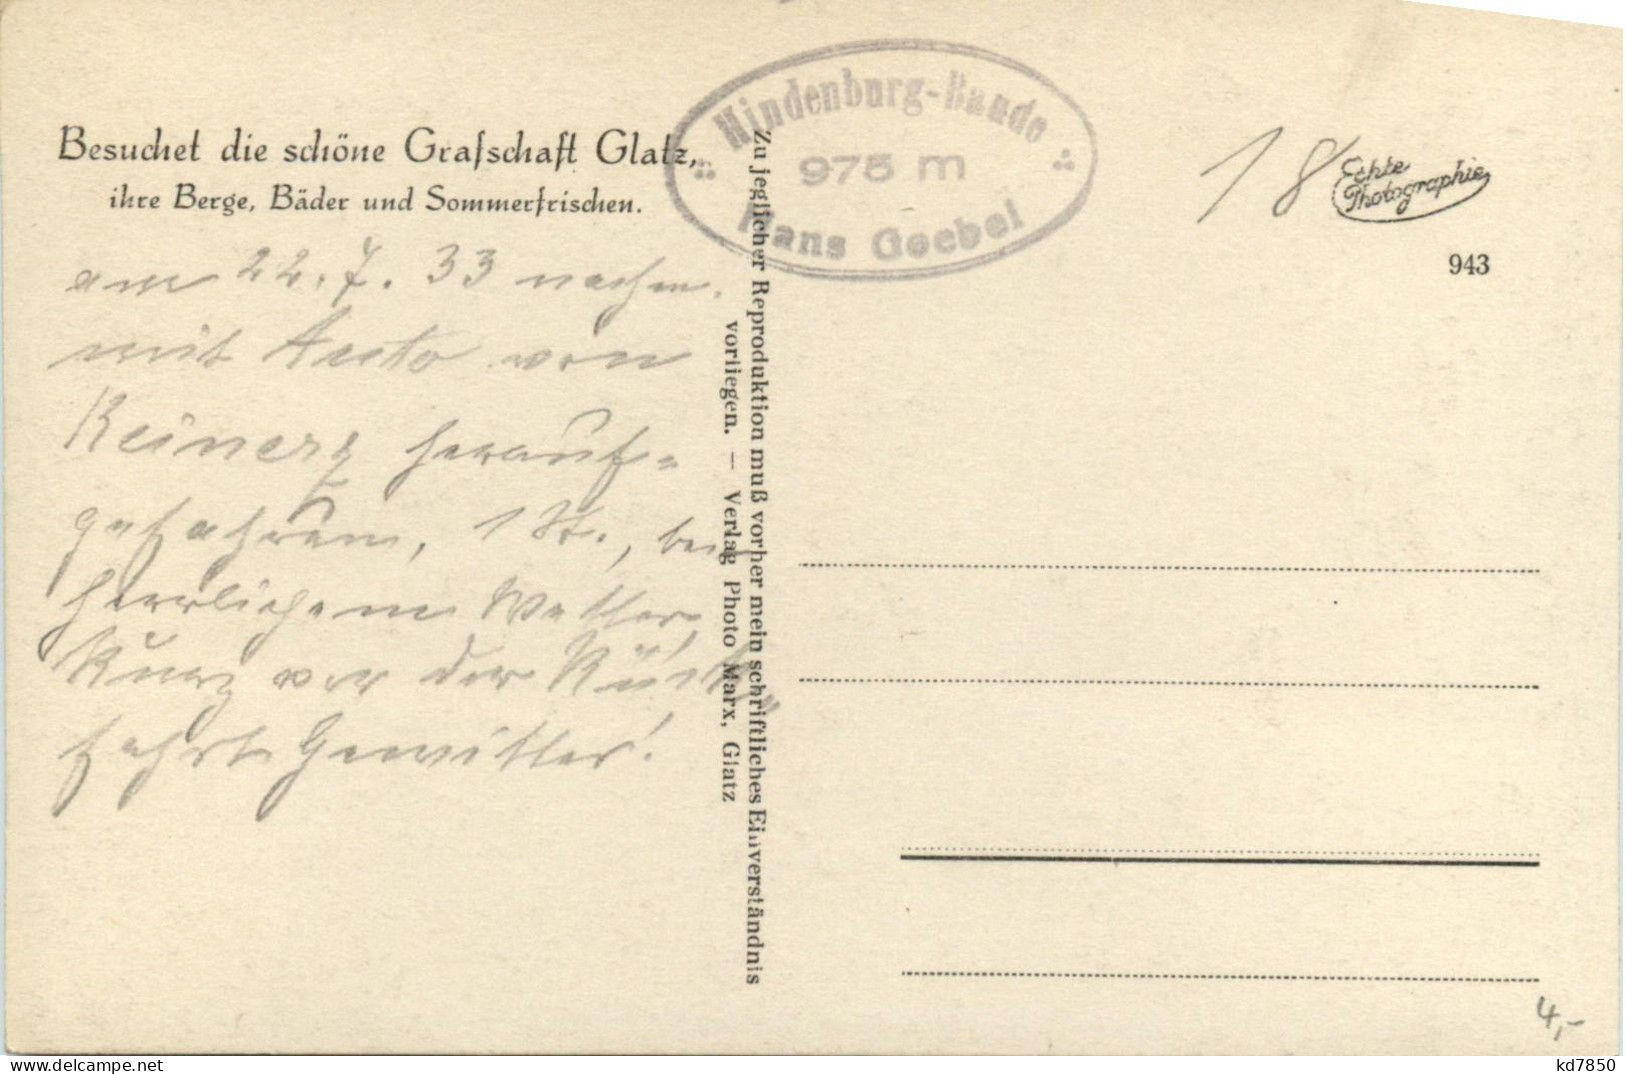 Besuchet die schöne Grafschaft Glatz,
ihre Berge, Bäder und Sommerfrischen.
am 22. 7. 33 nachm.
mit Auto von
Reinerz herauf-
gefahren, 1 St., bei
herrlichem Wetter,
Kurz vor der Rück-
fahrt Gewitter!
Zu jeglicher Reproduktion muß vorher mein schriftliches Einverständnis
vorliegen. — Verlag Photo Marx, Glatz
Hindenburg-Baude
975 m
Hans Goebel
18
Echte
Photographie
943
4,-
delcampe.net
kd7850